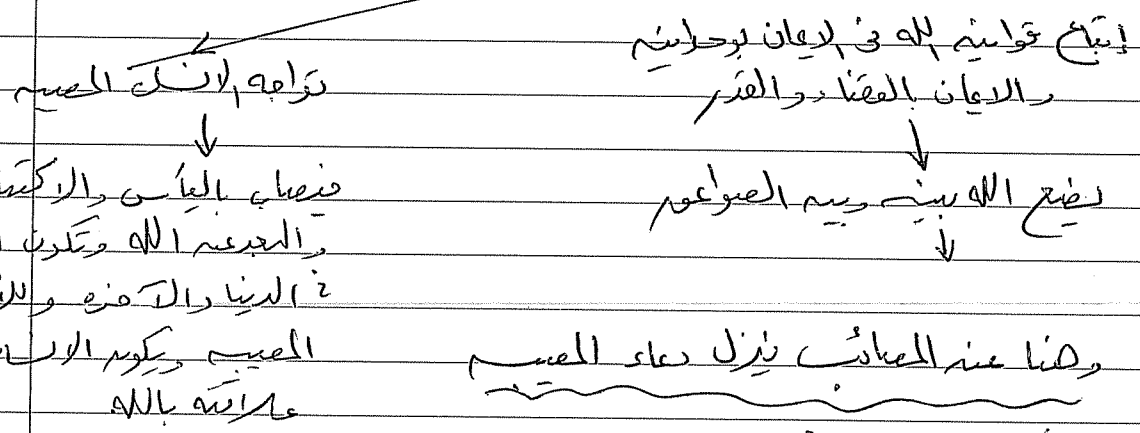 إتباع قوانين الله في الايمان بوحدانيته
والايمان بالقضاء والقدر
يضع الله بينه وبين الصواعق
وهنا عند المصائب ينزل دعاء المصيبه
تواجه الانسان المصيبه
فيصاب باليأس
والبعد عن الله وتكون
في الدنيا والآخره
المصيبه ويكون
علاقته بالله